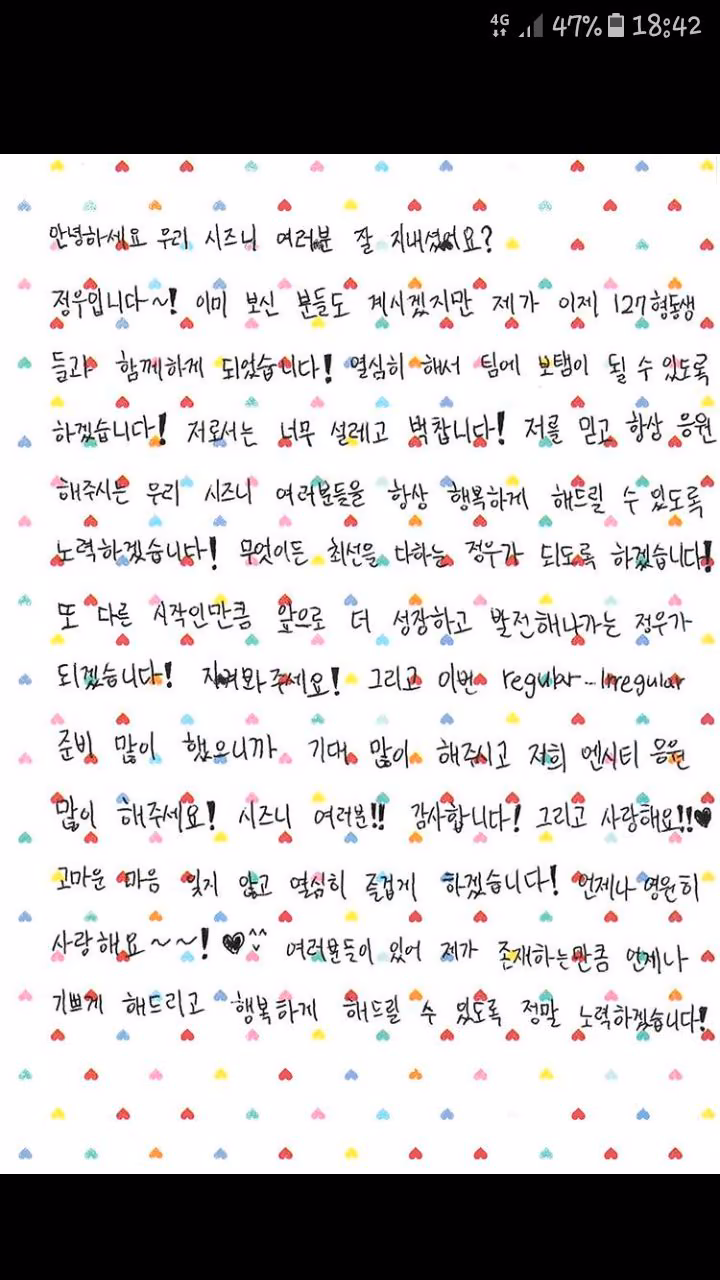 4G 47% 18:42
안녕하세요 우리 시즈니 여러분 잘 지내셨어요?
정우입니다~! 이미 보신 분들도 계시겠지만 제가 이제 127형동생
들과 함께하게 되었습니다! 열심히 해서 팀에 보탬이 될 수 있도록
하겠습니다! 저로서는 너무 설레고 벅찹니다! 저를 믿고 항상 응원
해주시는 우리 시즈니 여러분들을 항상 행복하게 해드릴 수 있도록
노력하겠습니다! 무엇이든 최선을 다하는 정우가 되도록 하겠습니다!
또 다른 시작인만큼 앞으로 더 성장하고 발전해나가는 정우가
되겠습니다! 지켜봐주세요! 그리고 이번 regular-Irregular
준비 많이 했으니까 기대 많이 해주시고 저희 엔시티 응원
많이 해주세요! 시즈니 여러분!! 감사합니다! 그리고 사랑해요!!♥
고마운 마음 잊지 않고 열심히 즐겁게 하겠습니다! 언제나 영원히
사랑해요~~! ♥^^ 여러분들이 있어 제가 존재하는만큼 언제나
기쁘게 해드리고 행복하게 해드릴 수 있도록 정말 노력하겠습니다!